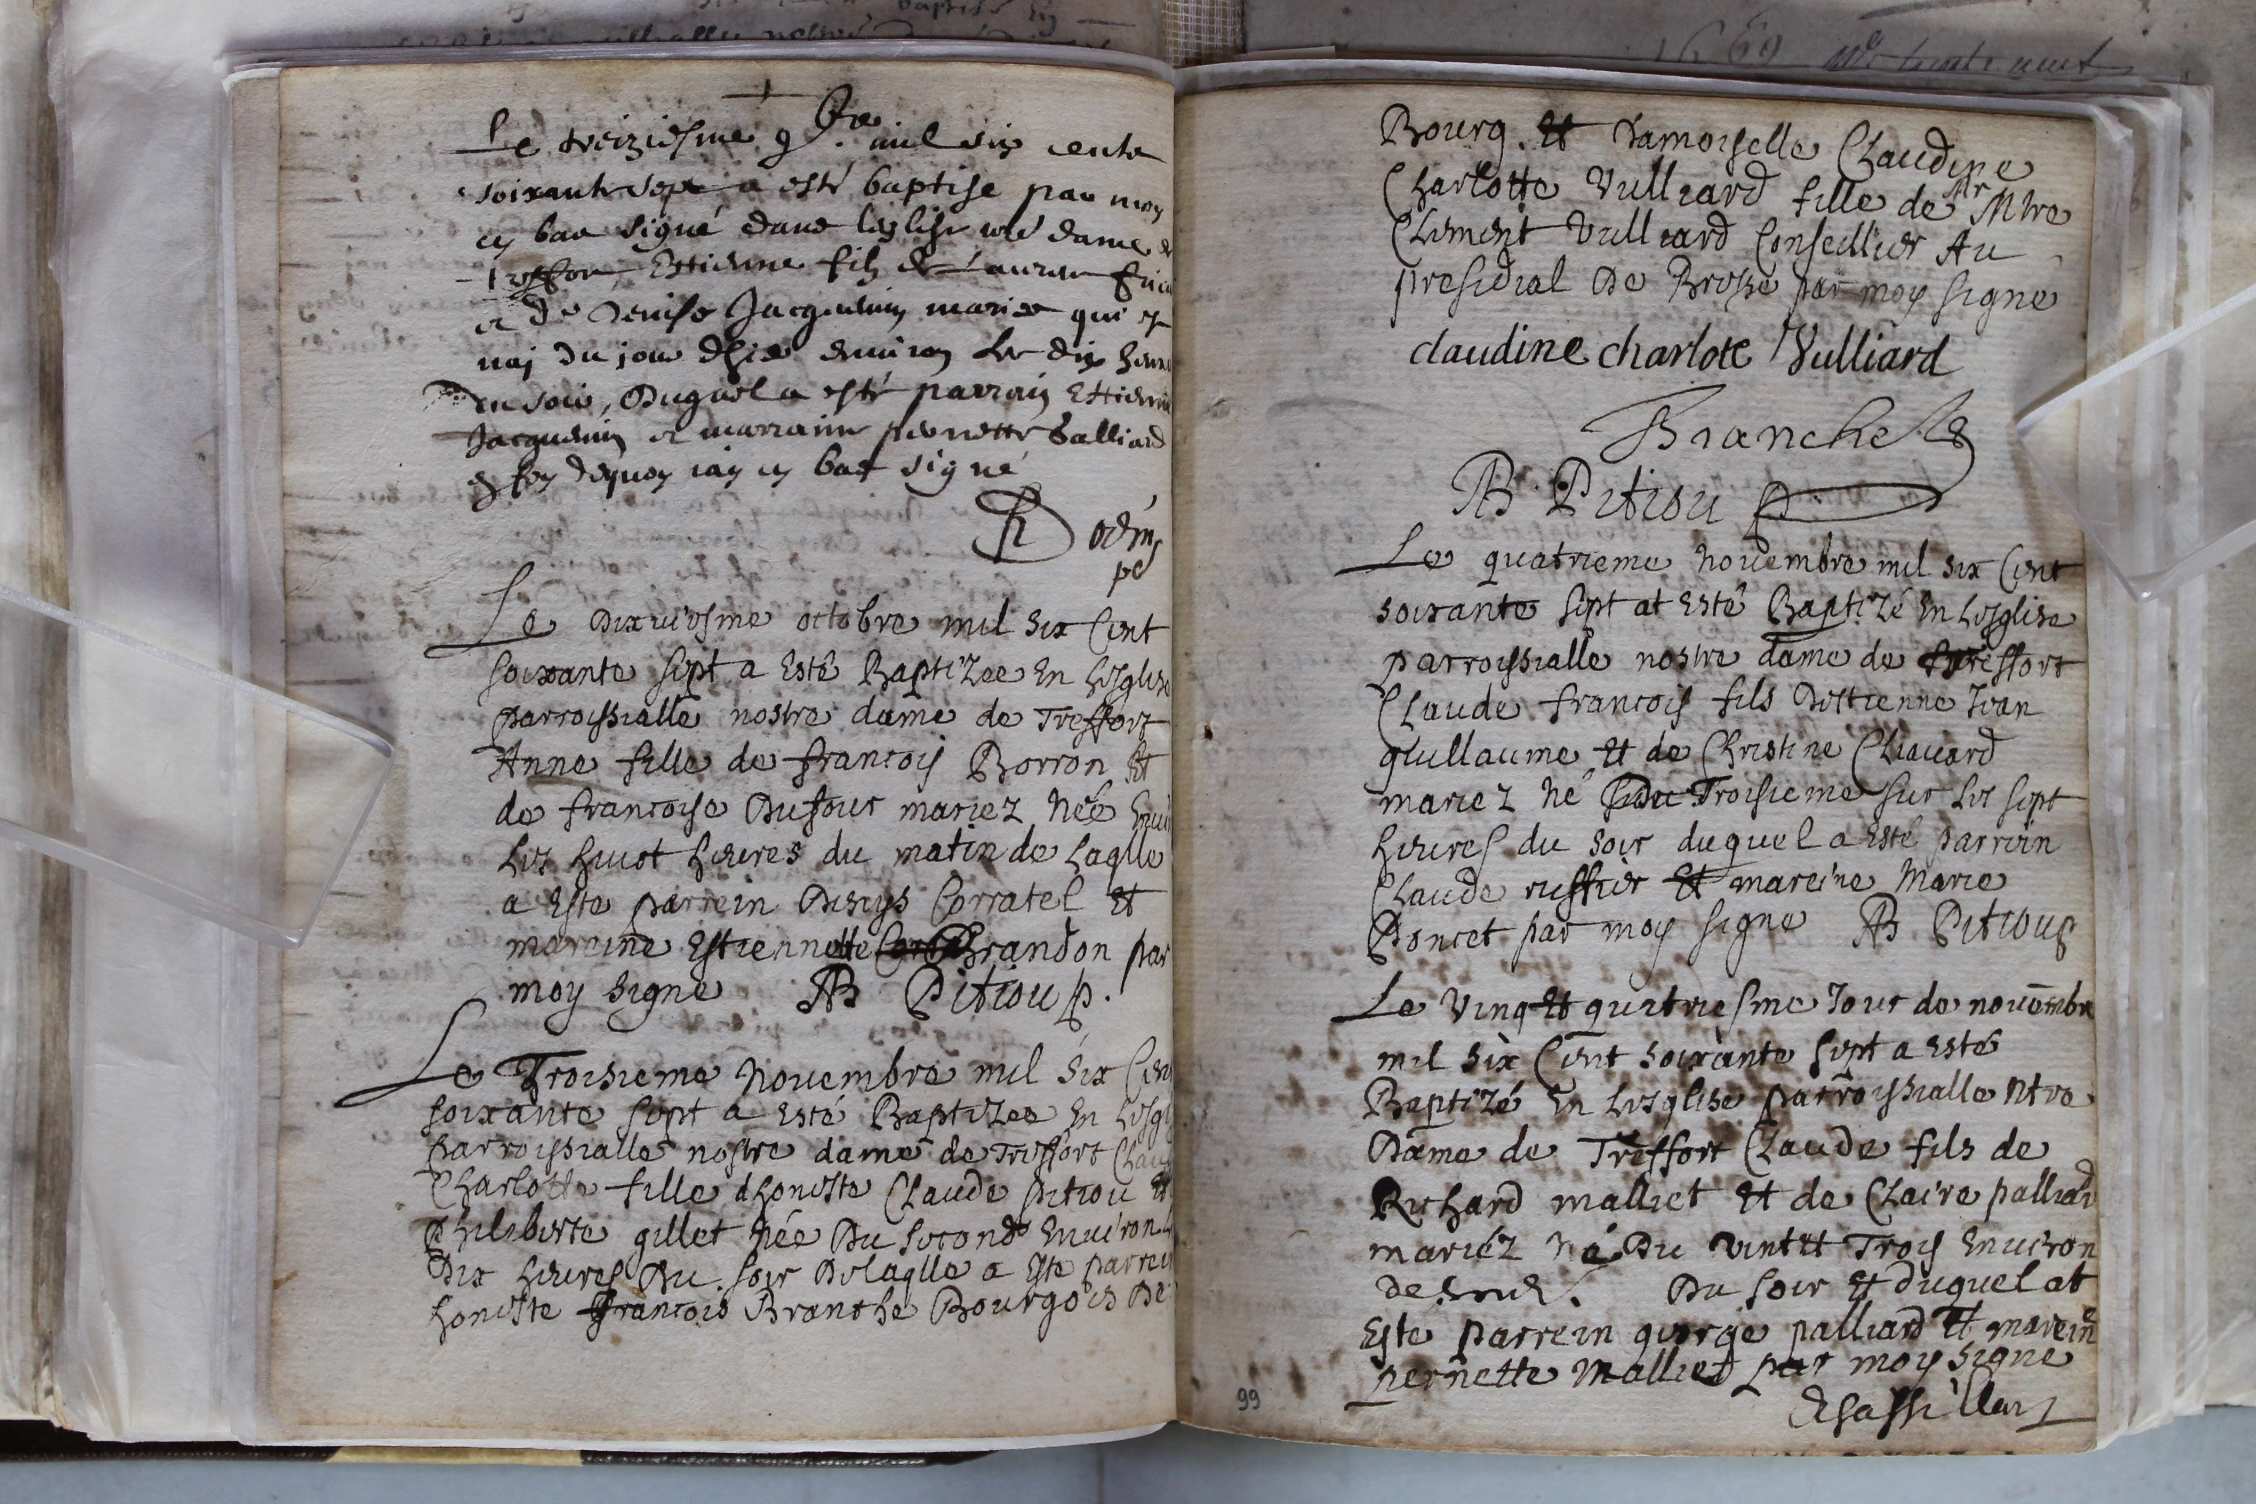 Le treiziesme 9bre. mil six cents
soixante sept a esté baptise par moy
cy bas signé dans leglise nre dame de
treffort, Ettienne fils de Laurent
et de Denise Jacquemin mariés qui est
nay du jour dhier environ les dix heures
du soir, Duquel a esté parrain Ettienne
Jacquemin et marraine pernette Palliard
en foy dequoy iay cy bas signé
Le Dixuiesme octobre mil six Cent
soixante sept a Esté Baptizee En Lesglise
parroissialle nostre dame de Treffort
Anne fille de francois Borron Et
de francoise Dufour mariez Née Envi
Les huiot heures du matin de Laqlle
a Este parrein Denys Corratel Et
mareine Estiennette Brandon par
moy signe AB Pitiou p.
Le Troisieme Novembre mil six Cen
soixante sept a Esté Baptizee En Lesgl
parroissialle nostre dame de Treffort Clau
Charlotte fille dhoneste Claude pitiou Et
Philiberte gillet Née Du second Environ L
Dix heures Du soir Delaqlle a Este parrein
honeste francois Branche Bourgois De
Bourg. Et Damoiselle Claudine
Charlotte Vulliard fille de Mr Mtre
Clement Vulliard Conseillier Au
presidial De Bresse par moy signe
claudine charlote Vulliard
Branche
AB Pitiou p.
Le quatrieme Novembre mil six Cent
soixante sept at Esté Baptizé En Lesglise
parroissialle nostre dame de treffort
Claude francois fils Dettienne Jean
guillaume Et de Christine Chavard
mariez Né Du Troisieme sur les sept
heures du soir duquel a Esté parrein
Claude ruffier Et mareine Marie
Poncet par moy signe AB Pitiou p
Le Vingt Et quatriesme Jour de novembre
mil six Cent soixante sept a Esté
Baptizé En Lesglise parroissialle Ntre
Dame de Treffort Claude fils de
Richard malliet Et de Claire palliard
mariéz Né Du vint Et Trois Environ
Du soir Et duquel at
Este parrein george palliard Et marein
pernette Malliet par moy signe
99